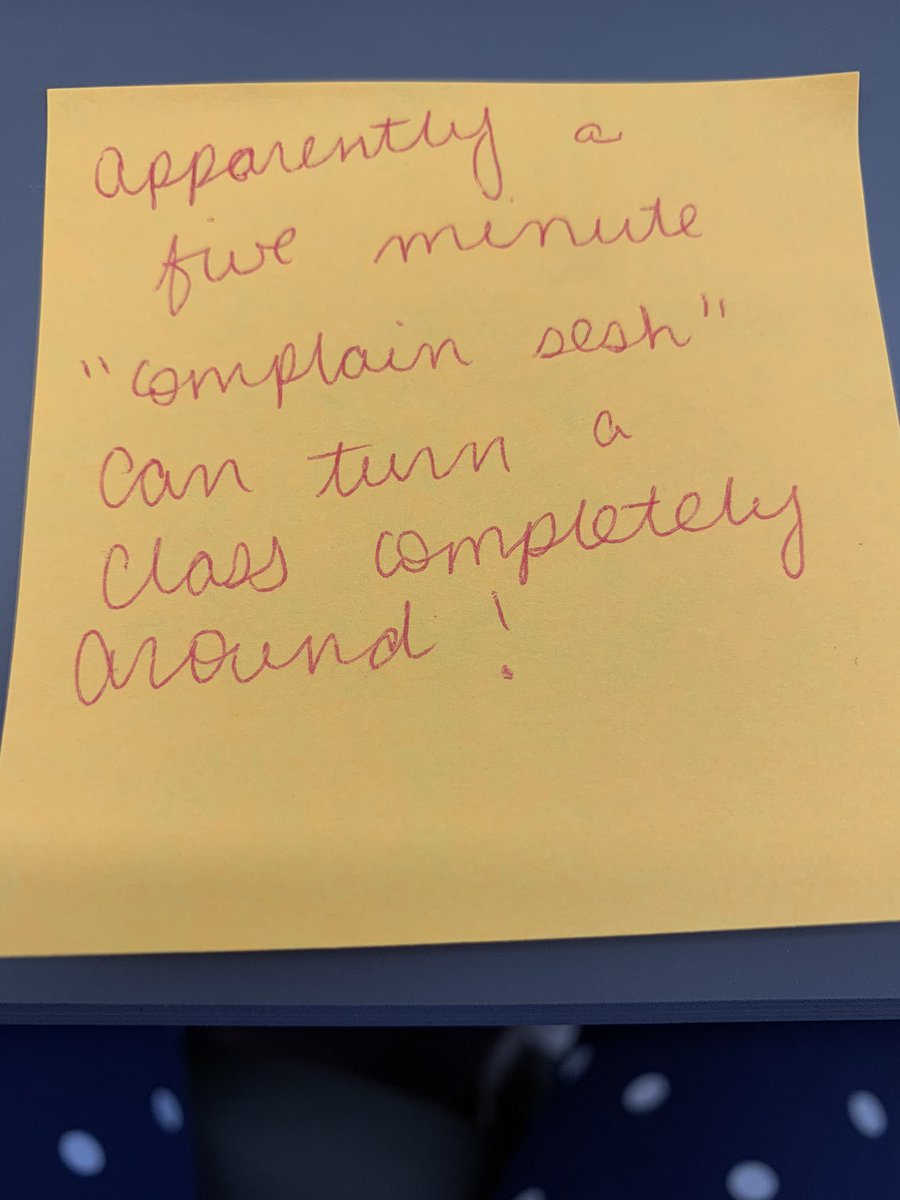 Apparently a
five minute
"complain sesh"
Can turn a
Class completely
Around!